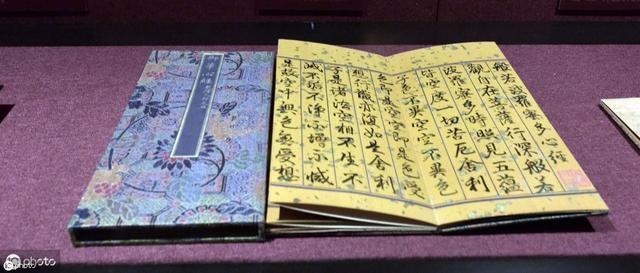 般若波羅蜜多心經
觀自在菩薩行深般若
波羅蜜多時照見五蘊
皆空度一切苦厄舍利
子色不異空空不異色
色即是空空即是色受
想行識亦復如是舍利
子是諸法空相不生不
滅不垢不淨不增不減
是故空中無色無受想
心經
photo